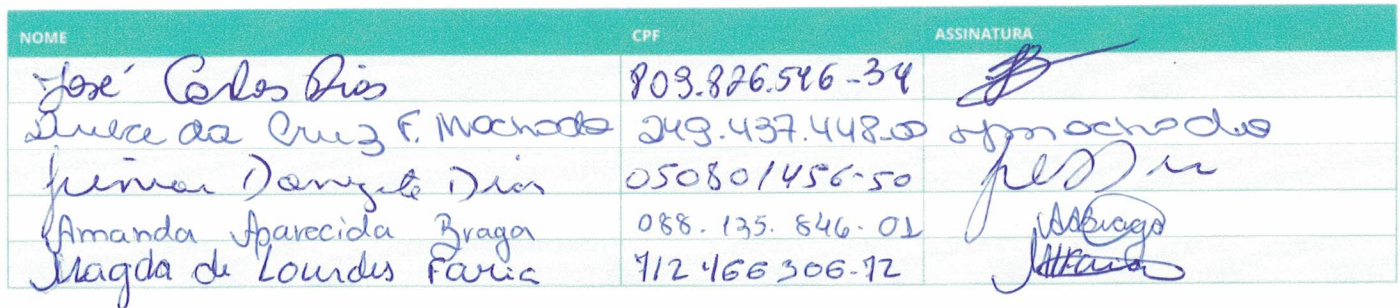 NOME CPF ASSINATURA
José Carlos Dias 809.826.546-34
Dulce da Cruz F. Machado 249.437.448-0 machado
Donizete Dias 050801456-50
Amanda Aparecida Braga 088.135.846-01 AABraga
Magda de Lourdes Faria 712466306-72 MFaria